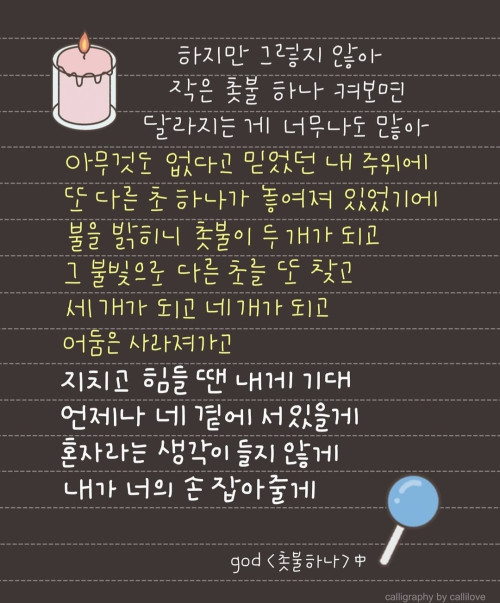 하지만 그렇지 않아
작은 촛불 하나 켜보면
달라지는 게 너무나도 많아
아무것도 없다고 믿었던 내 주위에
또 다른 초 하나가 놓여져 있었기에
불을 밝히니 촛불이 두 개가 되고
그 불빛으로 다른 초를 또 찾고
세 개가 되고 네 개가 되고
어둠은 사라져가고
지치고 힘들 땐 내게 기대
언제나 네 곁에 서 있을게
혼자라는 생각이 들지 않게
내가 너의 손 잡아줄게
god <촛불하나> 中
calligraphy by callilove